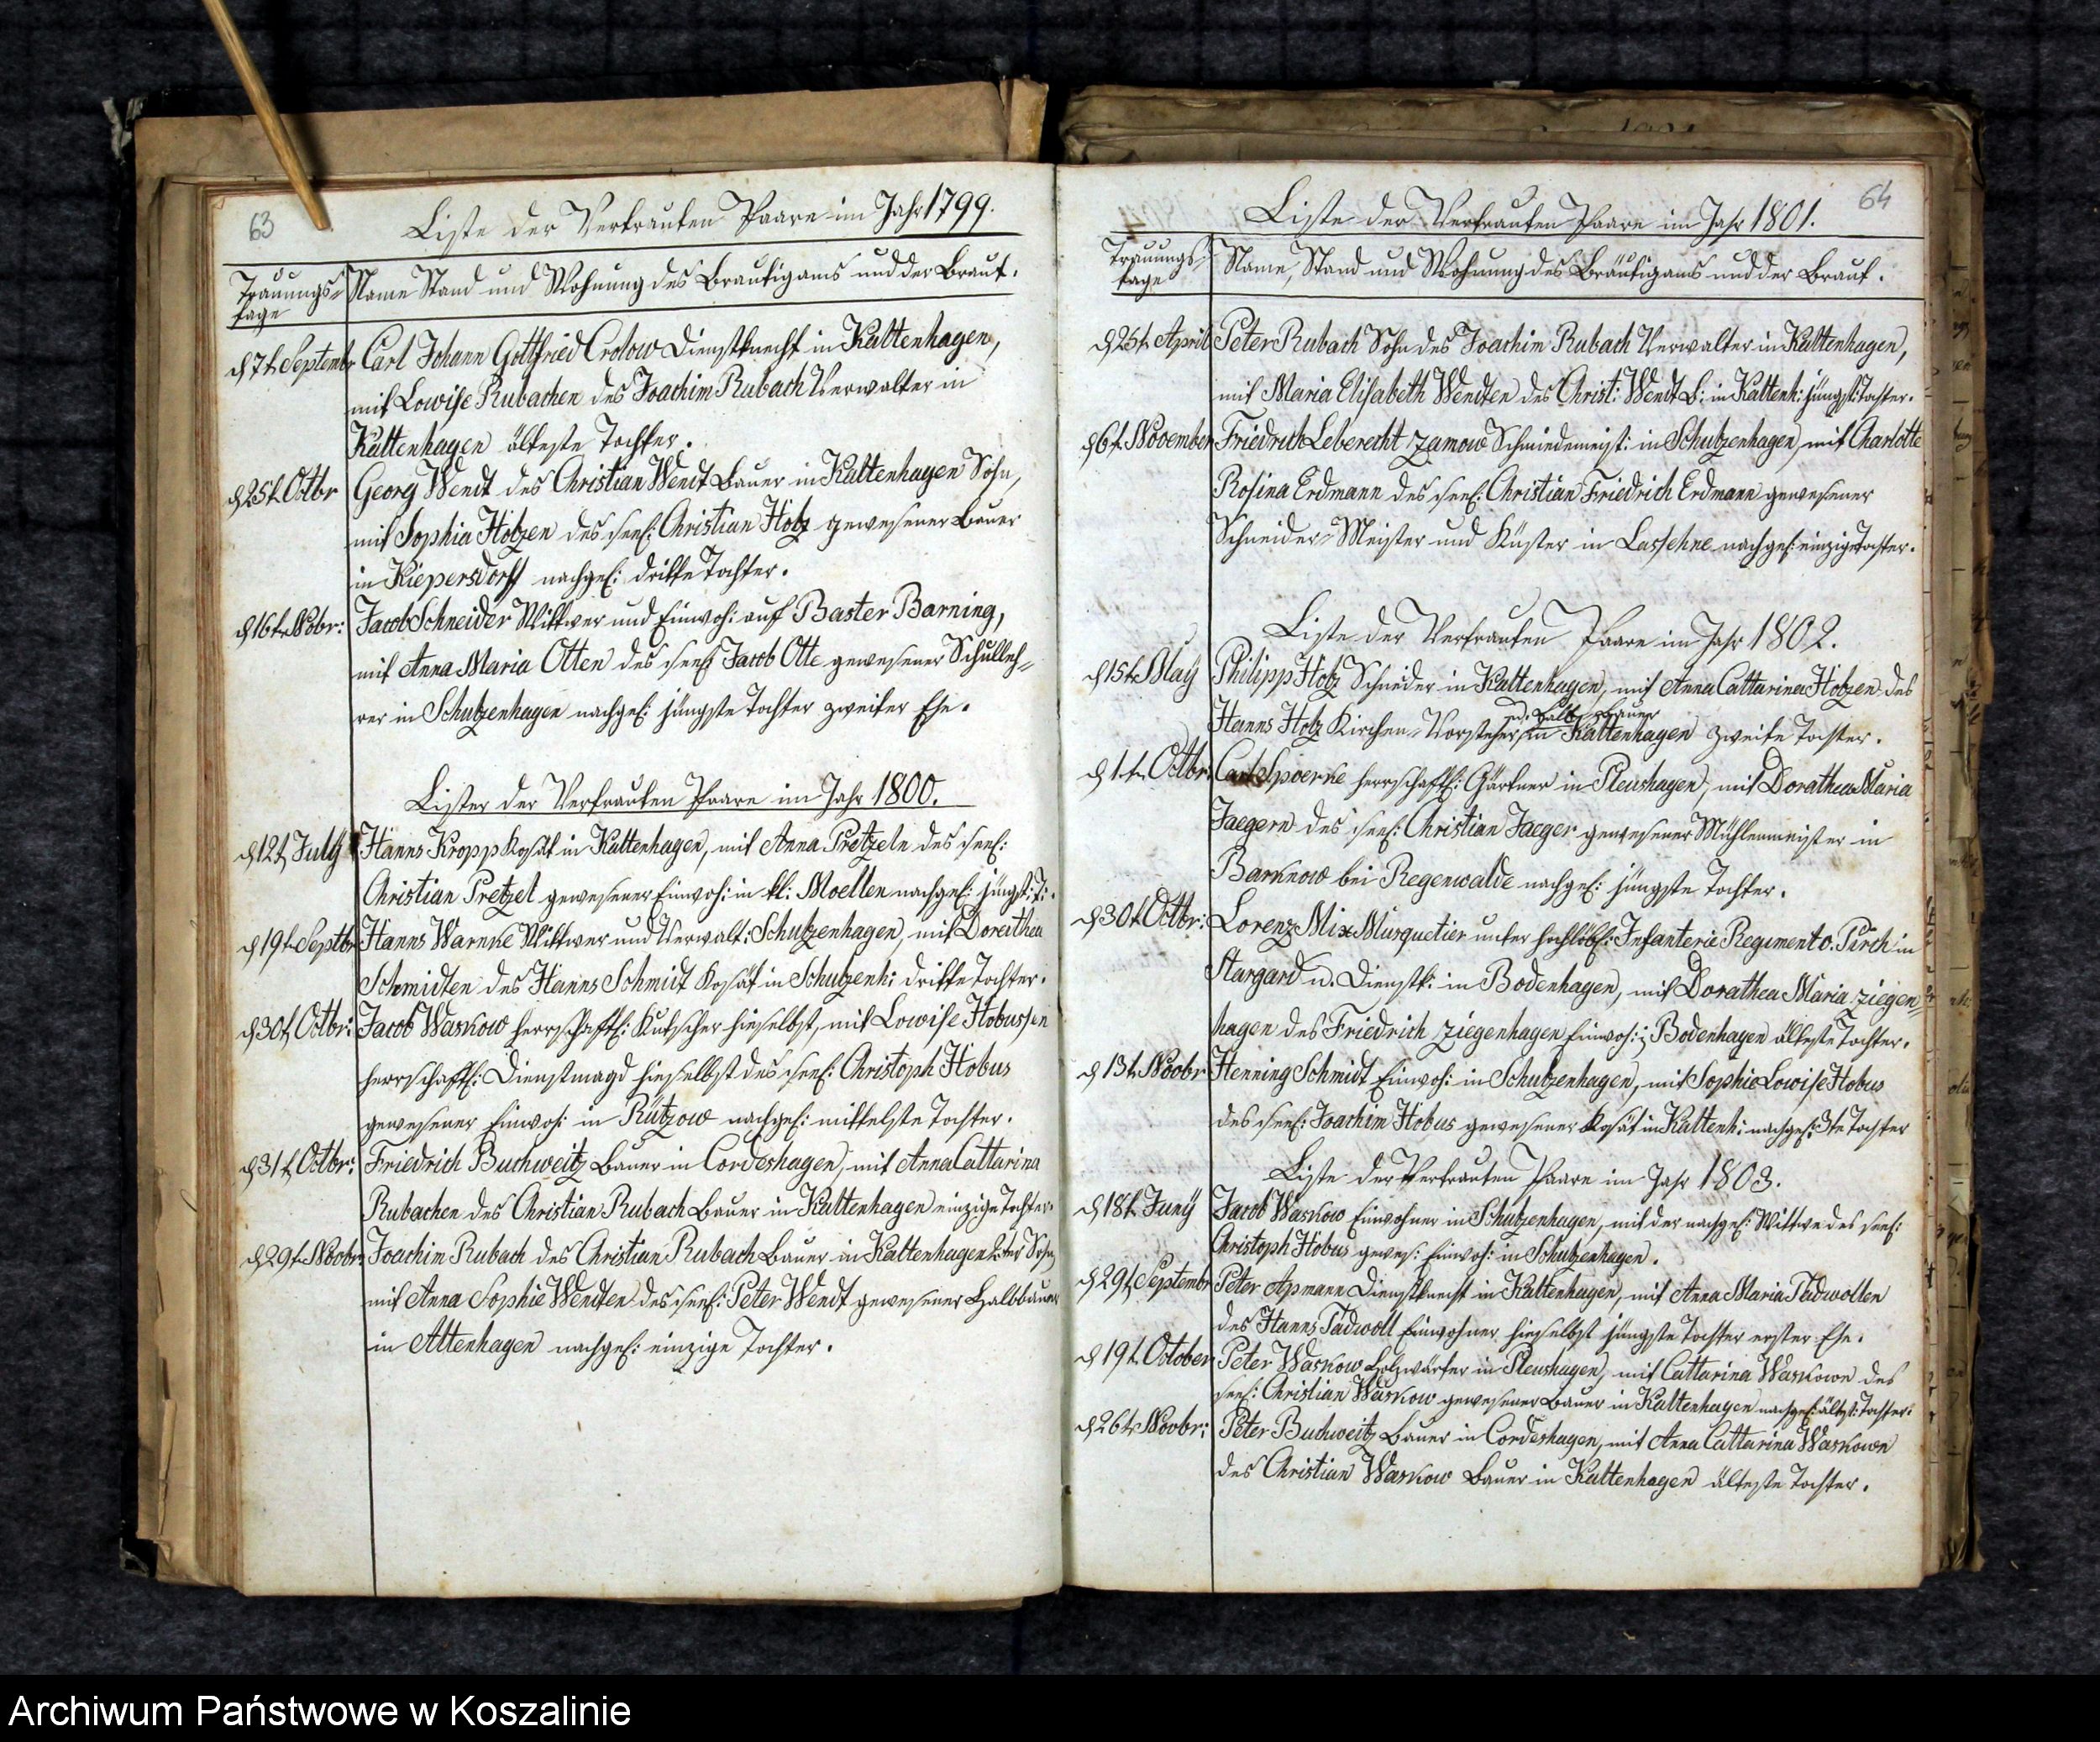 63
Liste der Vertrauten Paare im Jahr 1799.
Trauungs= tage
Name Stand und Wohnung des Brautigams und der Braut.
d 7t Septembr Carl Johann Gottfried Crolow Dienstknecht in Kaltenhagen,
mit Lowise Rubachen des Joachim Rubach Verwalter in
Kaltenhagen älteste Tochter.
d 25t Octbr Georg Wendt des Christian Wendt Bauer in Kaltenhagen Sohn,
mit Sophia Holzen des seel: Christian Holz gewesener Bauer
in Kiepersdorff nachgel: dritte Tochter.
d 16t Nobr: Jacob Schneider Wittwer und Einwoh: auf Baster Barning,
mit Anna Maria Otten des seel: Jacob Otte gewesener Schulleh=
rer in Schulzenhagen nachgel: jüngste Tochter zweiter Ehe.
Lister der Vertrauten Paare im Jahr 1800.
d 12t July Hanns Kropp Kosät in Kaltenhagen, mit Anna Pretzeln des seel:
Christian Pretzel gewesener Einwoh: in kl: Moellen nachgel: jüngst: T:.
d 19t Septbr Hanns Warnke Wittwer und Verwalt: Schulzenhagen, mit Dorethea
Schmidten des Hanns Schmidt Kosät in Schulzenh: dritte Tochter.
d 30t Octbr: Jacob Waskow herrschaftl: Kutscher hieselbst, mit Lowise Hobussen
herrschaftl: Dienstmagd hieselbst des seel: Christoph Hobus
gewesener Einwoh: in Rützow nachgel: mittelste Tochter.
d 31t Octbr: Friedrich Buchweitz Bauer in Cordeshagen, mit Anna Cattarina
Rubachen des Christian Rubach Bauer in Kaltenhagen einzige Tochter.
d 29t Novbr: Joachim Rubach des Christian Rubach Bauer in Kaltenhagen 2ter Sohn,
mit Anna Sophie Wendten des seel: Peter Wendt gewesener Halbbauer
in Altenhagen nachgel: einzige Tochter.
64
Liste der Vertrauten Paare im Jahr 1801.
Trauungs= tage
Name, Stand und Wohnung des Bräutigams und der Braut.
d 25t April Peter Rubach Sohn des Joachim Rubach Verwalter in Kaltenhagen,
mit Maria Elisabeth Wendten des Christ: Wendt B: in Kaltenh: jüngst: Tochter.
d 6t November Friedrich Leberecht Zamow Schmiedemeist: in Schulzenhagen, mit Charlotte
Rosina Erdmann des seel: Christian Friedrich Erdmann gewesener
Schneider=Meister und Küster in Lassehne nachgel: einzige Tochter.
Liste der Vertrauten Paare im Jahr 1802.
d 15t May Philipp Holz Schneider in Kaltenhagen, mit Anna Cattarina Holzen des
u. Halb=Bauer
Hanns Holz Kirchen=Vorsteher, in Kaltenhagen zweite Tochter.
d 1t Octbr: Carl Spoerke herrschaftl: Gärtner in Pleushagen, mit Dorathea Maria
Jaegern des seel: Christian Jaeger gewesener Mühlenmeister in
Barknow bei Regenwalde nachgel: jüngste Tochter.
d 30t Octbr: Lorenz Mix Musquetier unter hochlöbl: Infanterie Regiment v. Pirch in
Stargard u. Dienstk: in Bodenhagen, mit Dorathea Maria Ziegen=
hagen des Friedrich Ziegenhagen Einwoh: i; Bodenhagen älteste Tochter.
d 13t Novbr Henning Schmidt Einwoh: in Schulzenhagen, mit Sophie Lowise Hobus
des seel: Joachim Hobus gewesener Kosät in Kaltenh: nachgel: 3te Tochter
Liste der Vertrauten Paare im Jahr 1803.
d 18t Juny Jacob Waskow Einwohner in Schulzenhagen, mit der nachgel: Wittwe des seel:
Christoph Hobus gewes: Einwoh: in Schulzenhagen.
d 29t Septembr Peter Apmann Dienstknecht in Kaltenhagen, mit Anna Maria Tadwolten
des Hanns Tadwolt Einwohner hieselbst jüngste Tochter erster Ehe.
d 19t October Peter Waskow Holzwärter in Pleushagen, mit Cattarina Waskown des
seel: Christian Waskow gewesener Bauer in Kaltenhagen nachgel: ältst: Tochter.
d 26t Novbr: Peter Buchweitz Bauer in Cordeshagen, mit Anna Cattarina Waskown
des Christian Waskow Bauer in Kaltenhagen älteste Tochter.
Archiwum Państwowe w Koszalinie